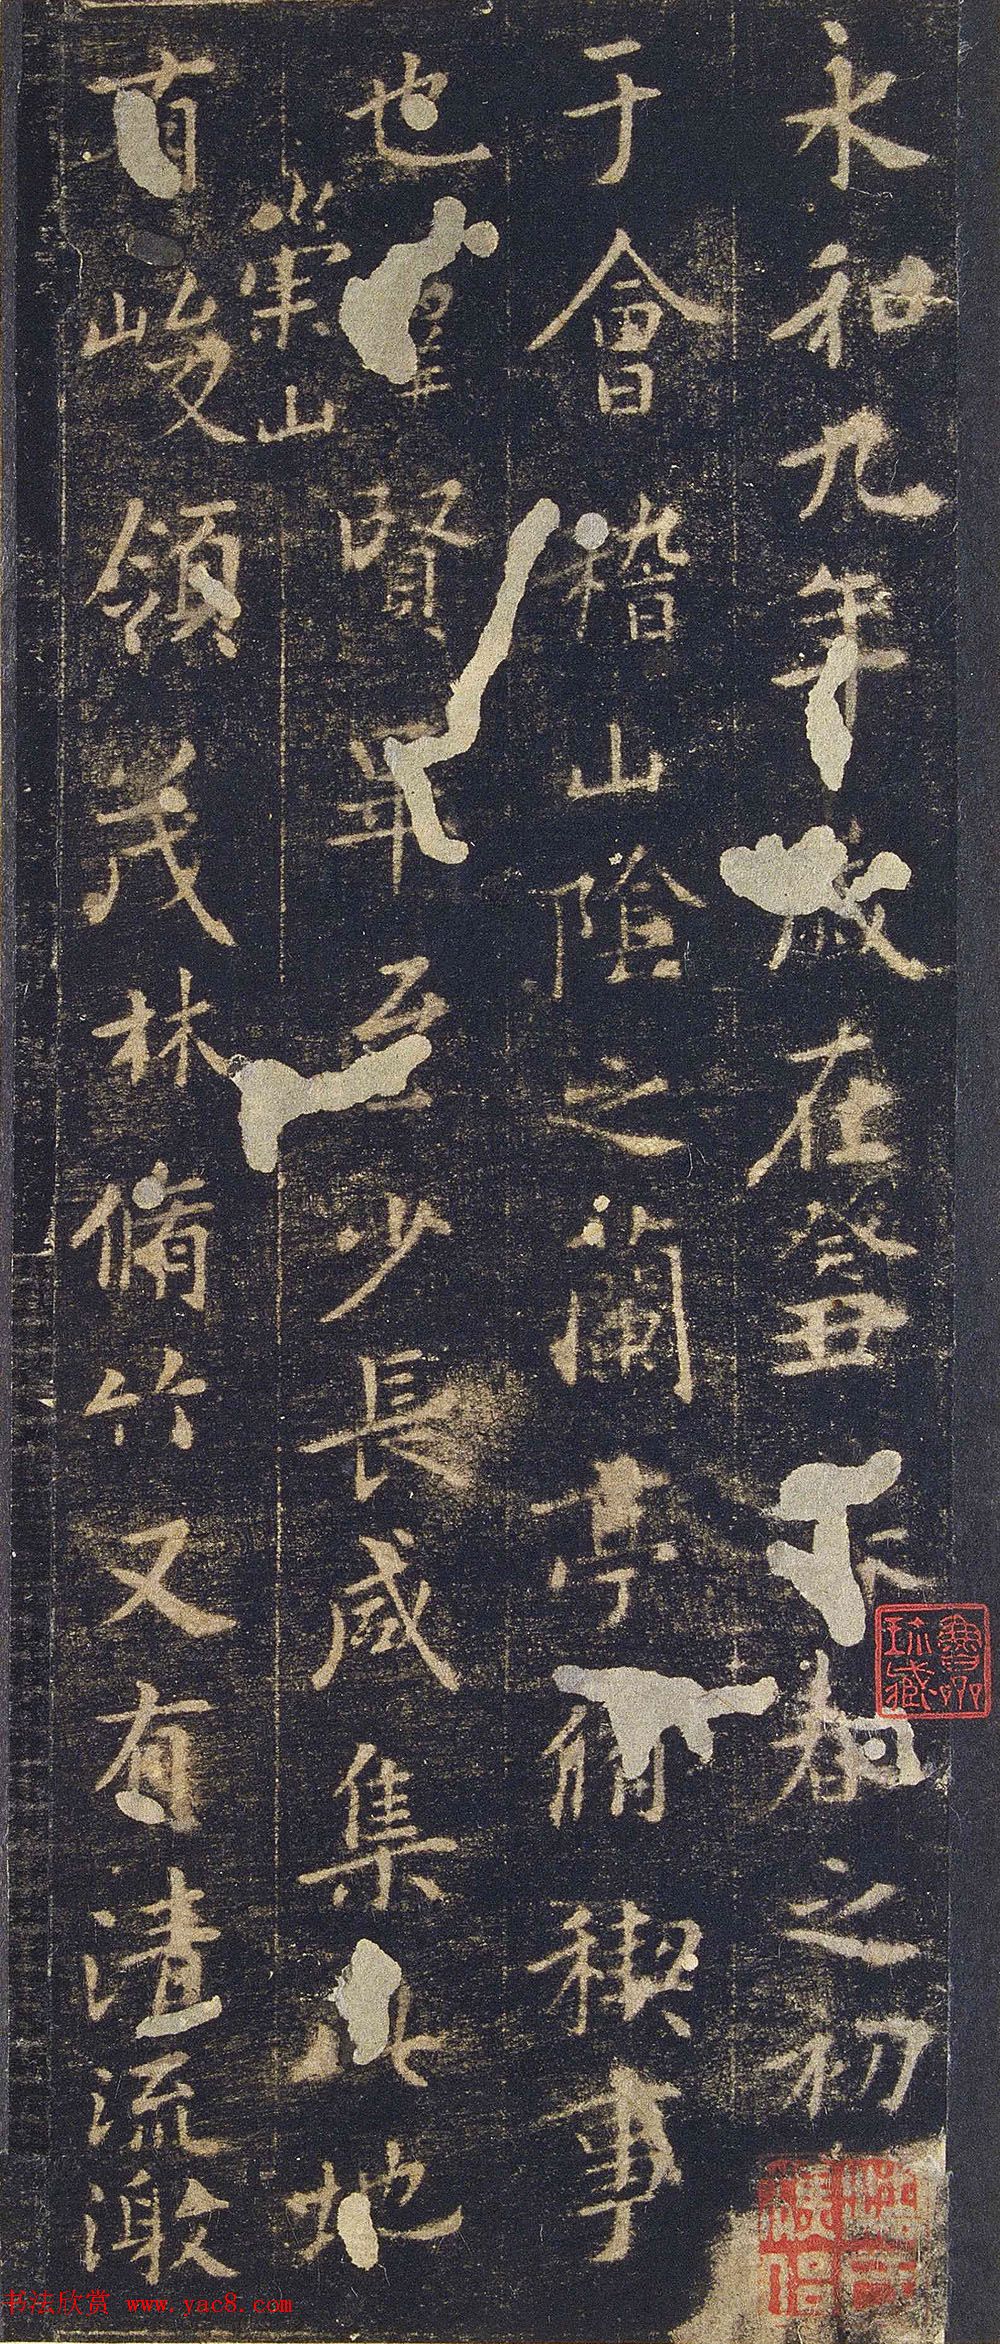 永和九年歲在癸丑暮春之初
于會稽山陰之蘭亭脩稧事
也羣賢畢至少長咸集此地
崇山
有峻領茂林脩竹又有清流激
书法欣赏 www.yac8.com